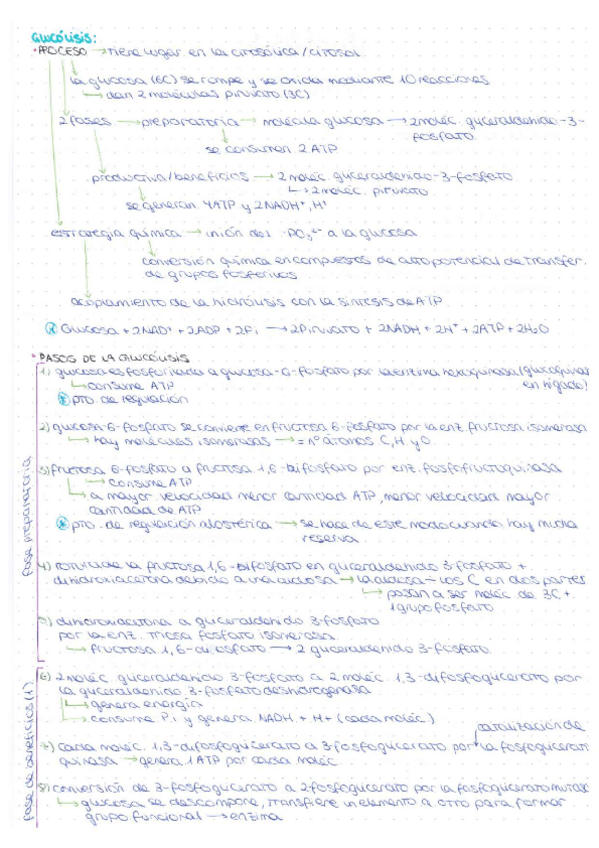 GLUCÓLISIS:
· PROCESO → tiene lugar en la citosólica / citosol
la glucosa (6C) se rompe y se oxida mediante 10 reacciones
→ dan 2 moléculas piruvato (3C)
2 fases → preparatoria → molécula glucosa → 2 moléc. gliceraldehido-3-
fosfato
se consumen 2 ATP
productiva / beneficios → 2 moléc. gliceraldehido-3-fosfato
→ 2 moléc. piruvato
se generan 4ATP y 2NADH⁺, H⁺
estrategia química → unión del -PO₃²⁻ a la glucosa
conversión química en compuestos de alto potencial de transfer.
de grupos fosforilos
acoplamiento de la hidrólisis con la síntesis de ATP
* Glucosa + 2NAD⁺ + 2ADP + 2Pi → 2Piruvato + 2NADH + 2H⁺ + 2ATP + 2H₂O
· PASOS DE LA GLUCÓLISIS
fase preparatoria
1) glucosa es fosforilada a glucosa-6-fosfato por la enzima hexoquinasa (glucoquinasa
en hígado)
→ consume ATP
* pto. de regulación
2) glucosa 6-fosfato se convierte en fructosa 6-fosfato por la enz. fructosa isomerasa
→ hay moléculas isomerasas → = nº átomos C, H y O
3) fructosa 6-fosfato a fructosa 1,6-bifosfato por enz. fosfofructoquinasa
→ consume ATP
→ a mayor velocidad menor cantidad ATP, menor velocidad mayor
cantidad de ATP
* pto. de regulación alostérica → se hace de este modo cuando hay mucha
reserva
4) rotura de la fructosa 1,6-bifosfato en gliceraldehido 3-fosfato +
dihidroxiacetona debido a una aldosa → la aldosa los C en dos partes
→ pasan a ser moléc de 3C +
1 grupo fosfato
5) dihidroxiacetona a gliceraldehido 3-fosfato
por la enz. triosa fosfato isomerasa
→ fructosa 1,6-difosfato → 2 gliceraldehido 3-fosfato
fase de beneficios (1)
6) 2 moléc. gliceraldehido 3-fosfato a 2 moléc. 1,3-difosfoglicerato por
la gliceraldehido 3-fosfato deshidrogenasa
→ genera energía
→ consume Pi y genera NADH + H+ (cada moléc)
catalización de
7) cada moléc. 1,3-difosfoglicerato a 3-fosfoglicerato por la fosfoglicerato
quinasa → genera 1 ATP por cada moléc.
8) conversión de 3-fosfoglicerato a 2-fosfoglicerato por la fosfogliceratomutasa
→ glucosa se descompone, transfiere un elemento a otro para formar
grupo funcional → enzima